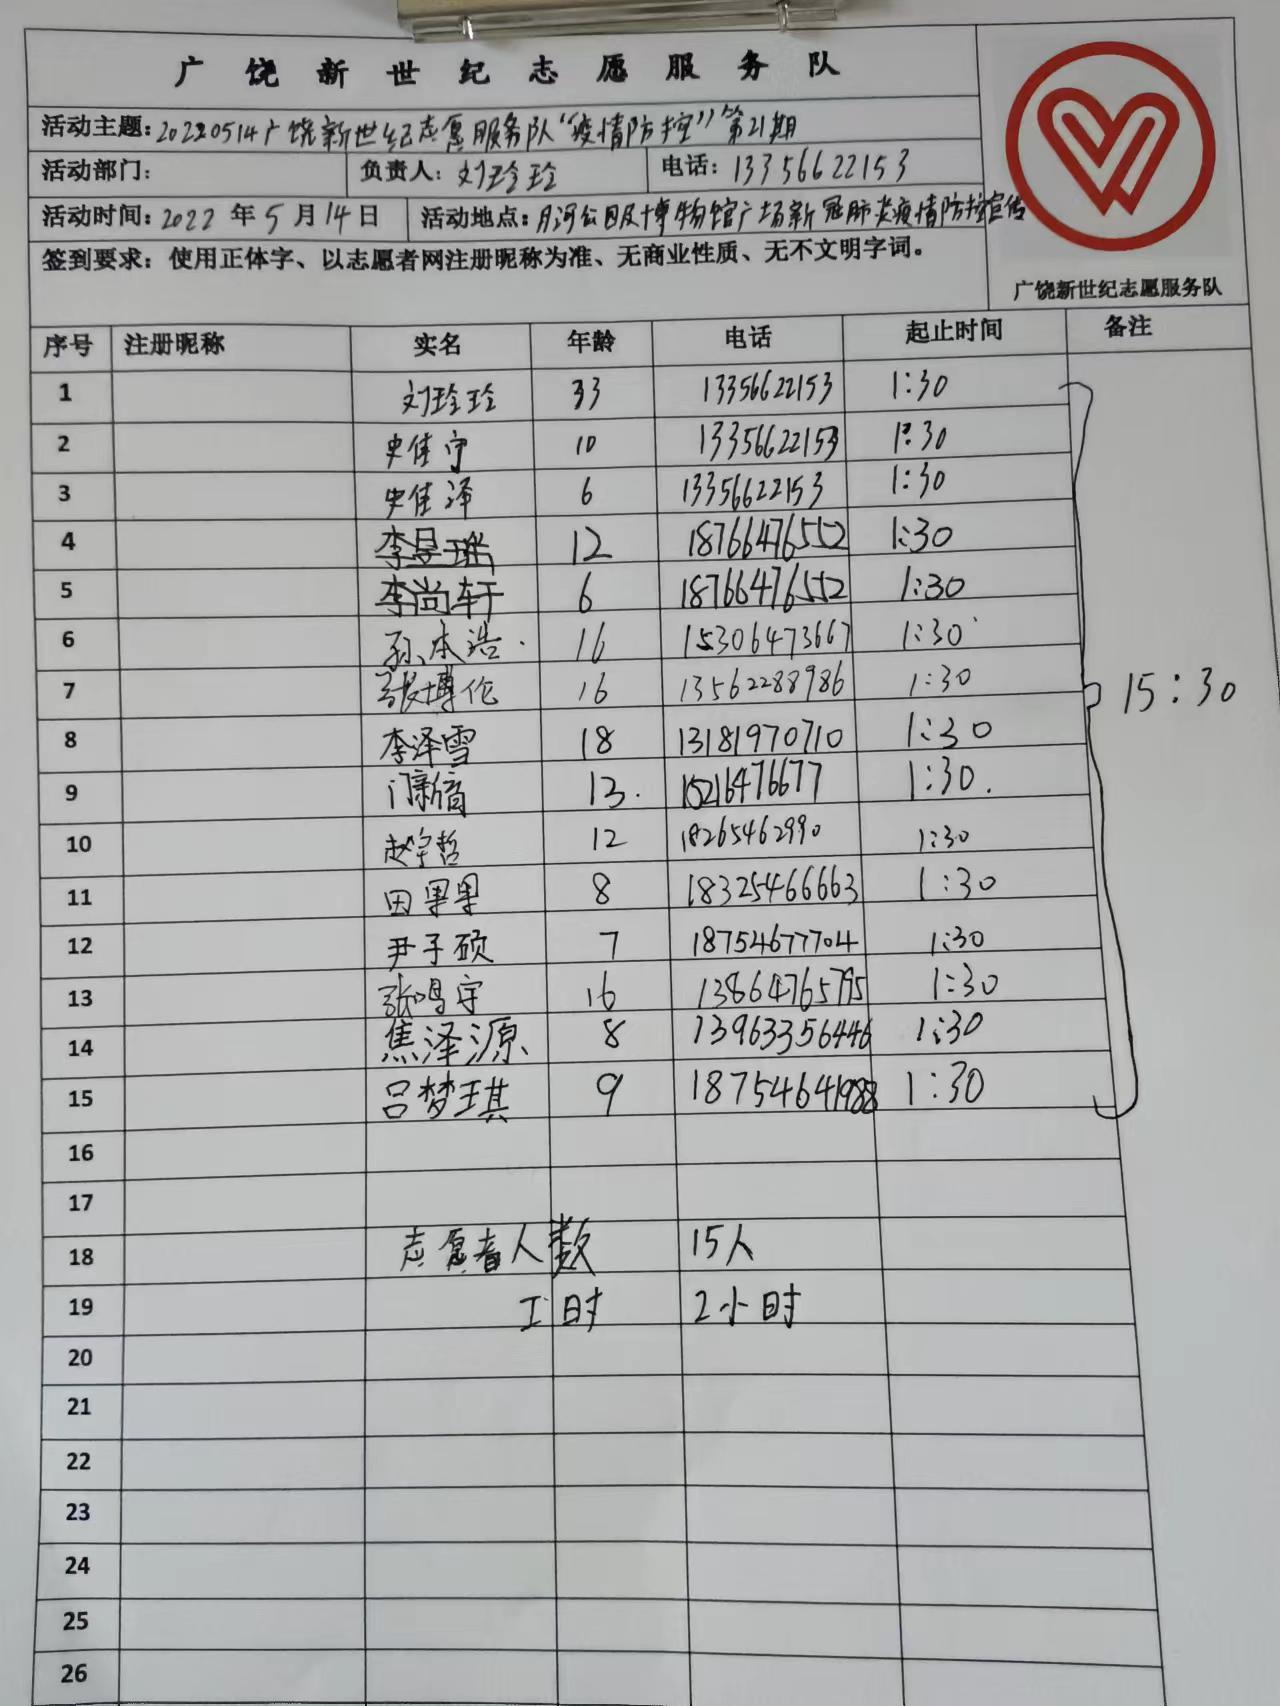 广饶新世纪志愿服务队
活动主题：20220514广饶新世纪志愿服务队“疫情防控”第21期
活动部门： 负责人：刘玲玲 电话：13356622153
活动时间：2022年5月14日 活动地点：月河公园及博物馆广场新冠肺炎疫情防控宣传
签到要求：使用正体字、以志愿者网注册昵称为准、无商业性质、无不文明字词。
广饶新世纪志愿服务队
序号 注册昵称 实名 年龄 电话 起止时间 备注
1 刘玲玲 33 13356622153 1:30
2 史佳宁 10 13356622153 1:30
3 史佳泽 6 13356622153 1:30
4 李昱琳 12 18766476552 1:30
5 李尚轩 6 18766476552 1:30
6 孙本浩 16 15306473667 1:30
7 张博伦 16 13562288986 1:30
15:30
8 李泽雪 18 13181970710 1:30
9 门新 13. 15216476677 1:30.
10 赵宇哲 12 18265462990 1:30
11 田果果 8 18325466663 1:30
12 尹子硕 7 18754677704 1:30
13 张鸣宇 16 13864765795 1:30
14 焦泽源 8 13963356446 1:30
15 吕梦琪 9 18754641988 1:30
16
17
18 志愿者人数 15人
19 工时 2小时
20
21
22
23
24
25
26